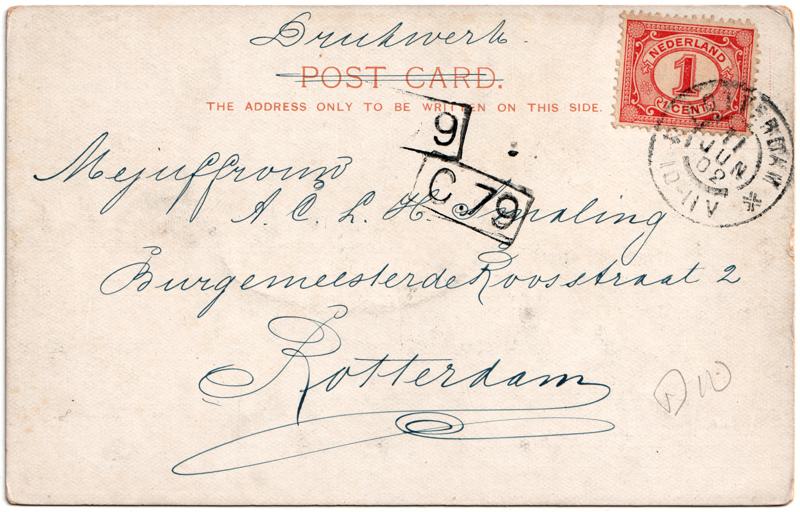 Drukwerk.
POST CARD.
THE ADDRESS ONLY TO BE WRITTEN ON THIS SIDE.
NEDERLAND
1
1 CENT
ROTTERDAM
11
JUN
02
10-11V
9
C.79
Mejuffrouw
A. C. L. H. Smaling
Burgemeester de Roosstraat 2
Rotterdam